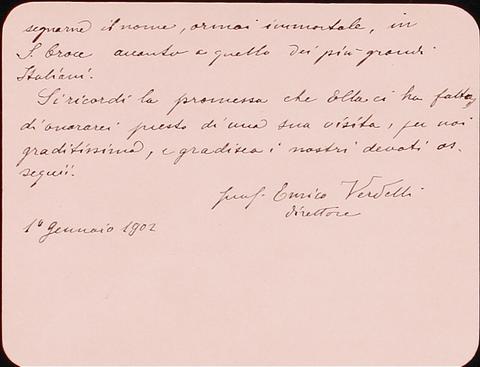 segnarne il nome, ormai immortale, in
S. Croce accanto a quello dei più grandi
Italiani.
Si ricordi la promessa che Ella ci ha fatto,
di onorarci presto di una sua visita, per noi
graditissima, e gradisca i nostri devoti os-
sequii.
prof. Enrico Verdelli
direttore
1º Gennaio 1902